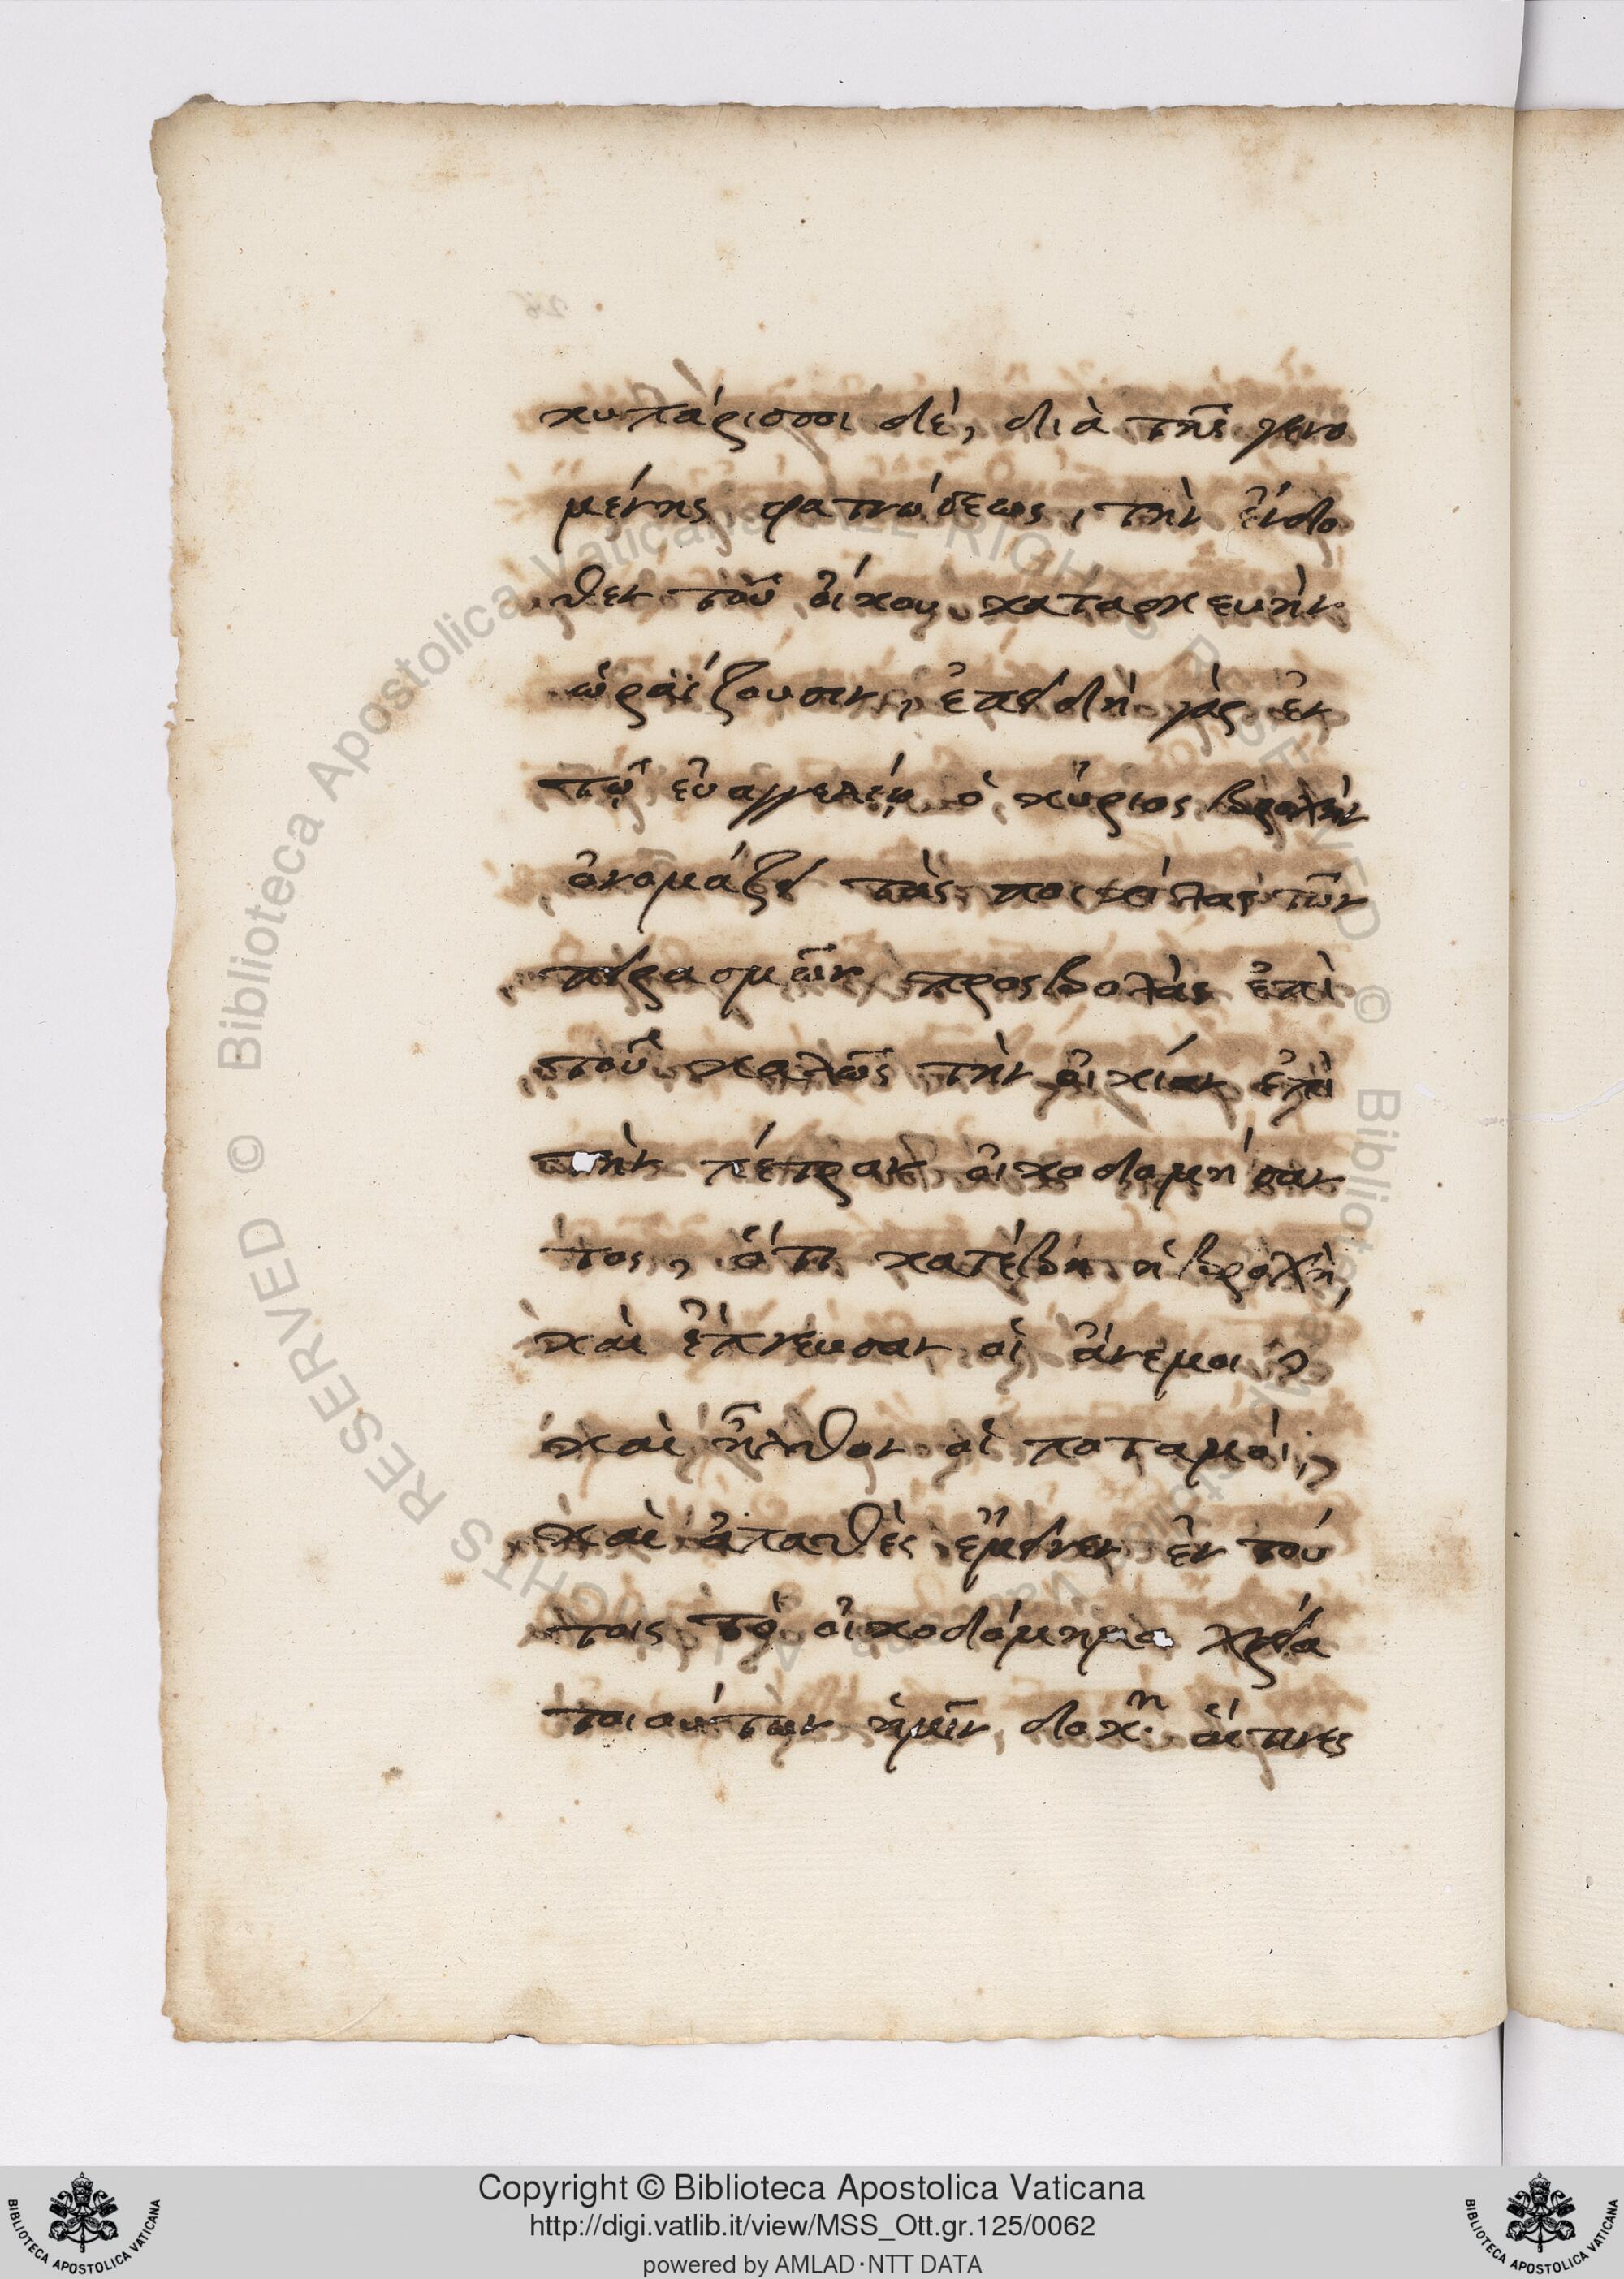 κυπάρισσοι δὲ, διὰ τῆς γενο
μένης φατνώσεως, τὴν ἔνδο
θεν τοῦ οἴκου κατασκευὴν
ὡραΐζουσιν, ἐπειδὴ γὰρ ἐν
τῷ εὐαγγελίῳ ὁ κύριος βροχὴν
ὀνομάζει τὰς ποικίλας τῶν
πειρασμῶν προσβολὰς ἐπὶ
τοῦ καλῶς τὴν οἰκίαν ἐπὶ
τὴν πέτραν οἰκοδομήσαν
τος, ὅτι κατέβη ἡ βροχὴ,
καὶ ἔπνευσαν οἱ ἄνεμοι,
καὶ ἦλθον οἱ ποταμοί,
καὶ ἀπαθὲς ἔμεινεν ἐν τού
τοις τὸ οἰκοδόμημα χρεία
τοιούτων ἡμῖν δοκ^η. αἵ τινες
Copyright © Biblioteca Apostolica Vaticana
http://digi.vatlib.it/view/MSS_Ott.gr.125/0062
powered by AMLAD·NTT DATA
BIBLIOTECA APOSTOLICA VATICANA
BIBLIOTECA APOSTOLICA VATICANA
© Biblioteca Apostolica Vaticana ALL RIGHTS RESERVED